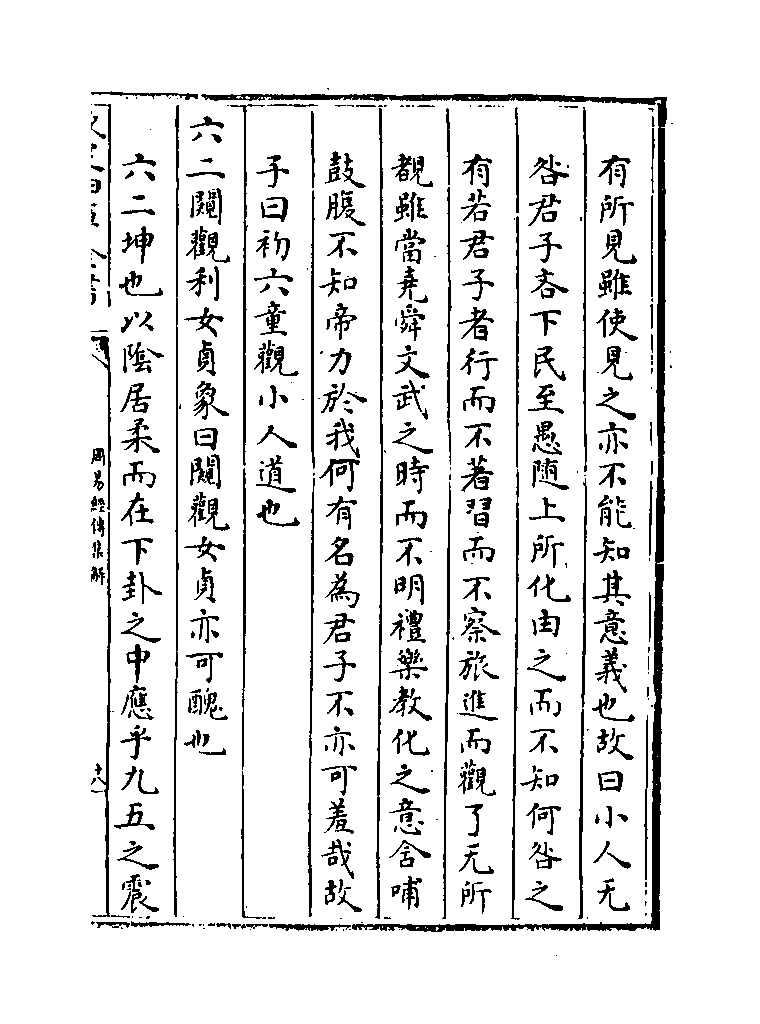 有所見雖使見之亦不能知其意義也故曰小人无
咎君子吝下民至愚随上所化由之而不知何咎之
有若君子者行而不著習而不察旅進而觀了无所
覩雖當堯舜文武之時而不明禮樂教化之意含哺
鼓腹不知帝力於我何有名為君子不亦可羞哉故
子曰初六童觀小人道也
六二闚觀利女貞象曰闚觀女貞亦可醜也
六二坤也以陰居柔而在下卦之中應乎九五之震
周易經傳集解
十八